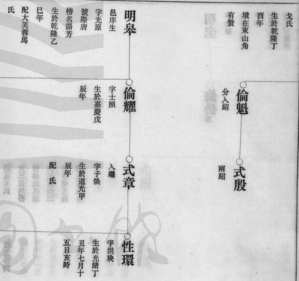 戈氏
生於乾隆丁
酉年
墳在東山角
有贊
倫魁
分入紹
式殷
兩紹
明皋
邑庠生
字光原
號際唐
榜名揚芳
生於乾隆乙
巳年
配大芙蓉馬
氏
倫耀
字士照
生於嘉慶戊
辰年
式章
入繼
字子煥
生於道光甲
辰年
配 氏
性環
字洪琰
生於光緒丁
丑年七月十
五日亥時